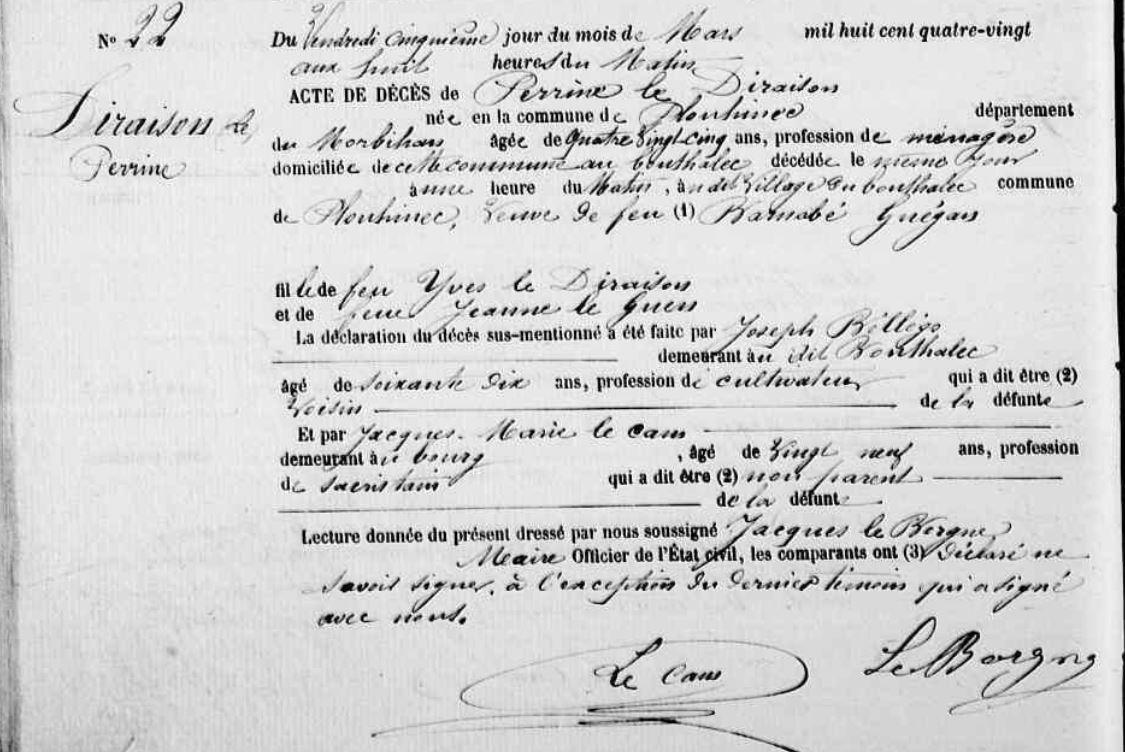 N° 22
Du Vendredi cinquième jour du mois de Mars mil huit cent quatre-vingt
aux huit heures du Matin
ACTE DE DÉCÈS de Perrine le Diraison
née en la commune de Plouhinec département
Diraison le
Perrine
du Morbihan, âgée de Quatre Vingt Cinq ans, profession de ménagère
domiciliée de cette commune au bouthalec décédée le même jour
à une heure du Matin, au dit Village du bouthalec commune
de Plouhinec, Veuve de feu (1) Barnabé Guégan
fille de feu Yves le Diraison
et de feue Jeanne le Guen
La déclaration du décès sus-mentionné a été faite par Joseph
demeurant au dit Bouthalec
âgé de soixante dix ans, profession de cultivateur qui a dit être (2)
Voisin de la défunte
Et par Jacques-Marie le cam
demeurant au bourg, âgé de Vingt neuf ans, profession
de sacristain qui a dit être (2) non parent
de la défunte
Lecture donnée du présent dressé par nous soussigné Jacques le Borgne
Maire Officier de l'État civil, les comparants ont (3) déclaré ne
savoir signer, à l'exception du dernier témoin qui a signé
avec nous.
Le cam
Le Borgne